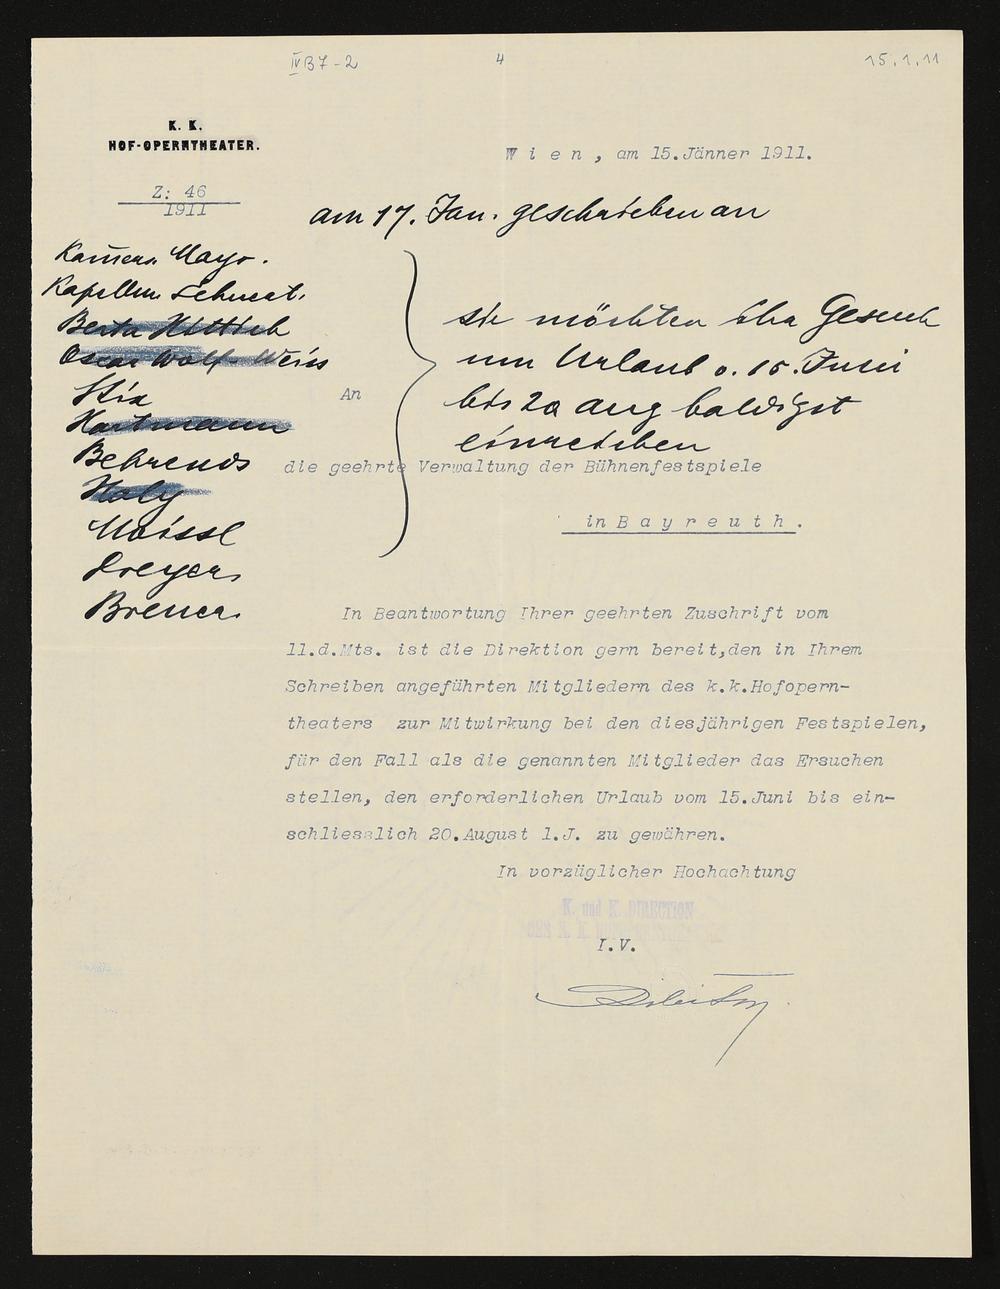 IV B 7 - 2
4
15.1.11
K. K.
HOF-OPERNTHEATER.
Wien, am 15.Jänner 1911.
Z: 46
1911
am 17. Jan. geschrieben an
Mayr.
Kapellm.
Berta Kittich
Oscar Wolf-Weiss
Stix
Hartmann
Behrends
Haly
Moissl
Dreyer
Breuer.
sie möchten Gesuch
um Urlaub v. 15. Juni
bis 20 Aug baldigst
einreichen
An
die geehrte Verwaltung der Bühnenfestspiele
in Bayreuth.
In Beantwortung Ihrer geehrten Zuschrift vom
11.d.Mts. ist die Direktion gern bereit,den in Ihrem
Schreiben angeführten Mitgliedern des k.k.Hofopern-
theaters zur Mitwirkung bei den diesjährigen Festspielen,
für den Fall als die genannten Mitglieder das Ersuchen
stellen, den erforderlichen Urlaub vom 15.Juni bis ein-
schliesslich 20.August l.J. zu gewähren.
In vorzüglicher Hochachtung
K. und K. DIRECTION
I.V.